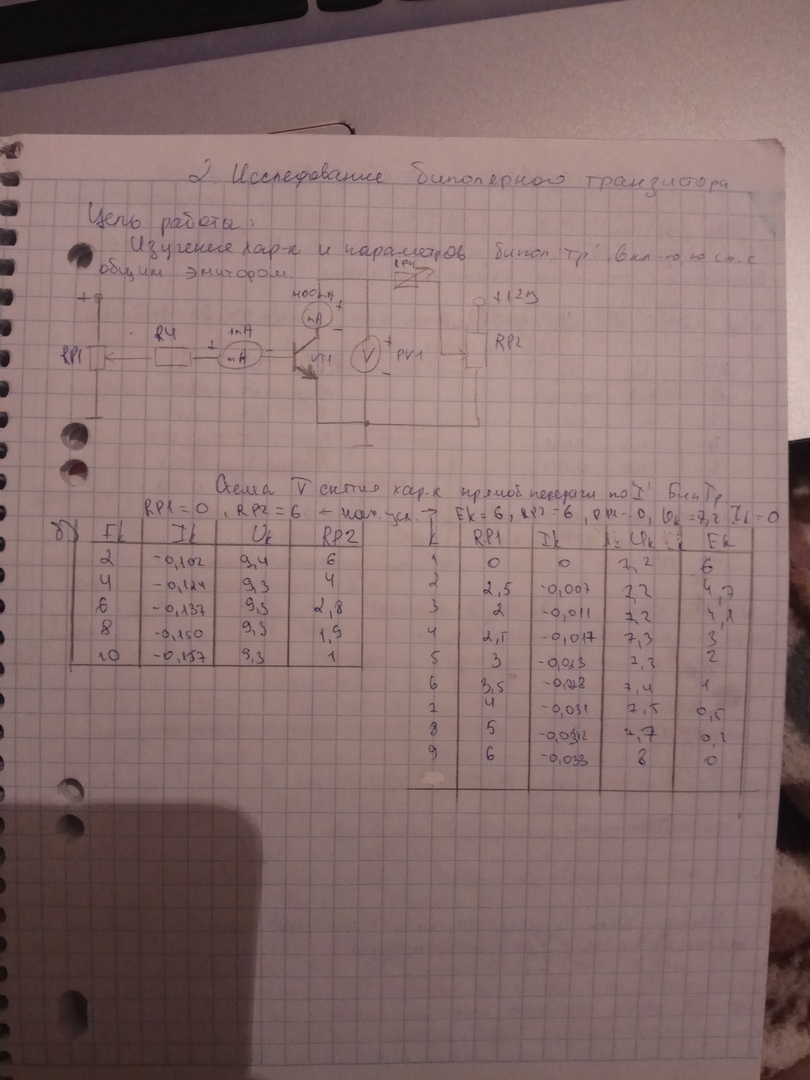 2. Исследование биполерного транзистора
Цель работы:
Изучение хар-к и параметров бипол тр
общим эмитором.
+
RP1
R4
+
1mA
mA
-
400mA
mA
+
-
VT1
V
+
-
PV1
+12В
RP2
Схема V снятия хар-к прямой передачи по I Бип Тр
RP1=0, RP2=6 ← нач. ус. → Ек=6, RP2=6, RP1=0, Uк=7,2 Iк=0
б) Ек Iк Uк RP2
2 -0,102 9,4 6
4 -0,124 9,3 4
6 -0,137 9,3 2,8
8 -0,150 9,3 1,9
10 -0,157 9,3 1
RP1 Iк Uк Ек
1 0 0 7,2 6
2 2,5 -0,007 7,2 4,7
3 2 -0,011 7,2
4 -0,017 7,3 3
5 3 -0,023 2
6 3,5 -0,028 7,4 1
7 4 -0,031 7,5 0,5
8 5 7,7
9 6 -0,033 8 0